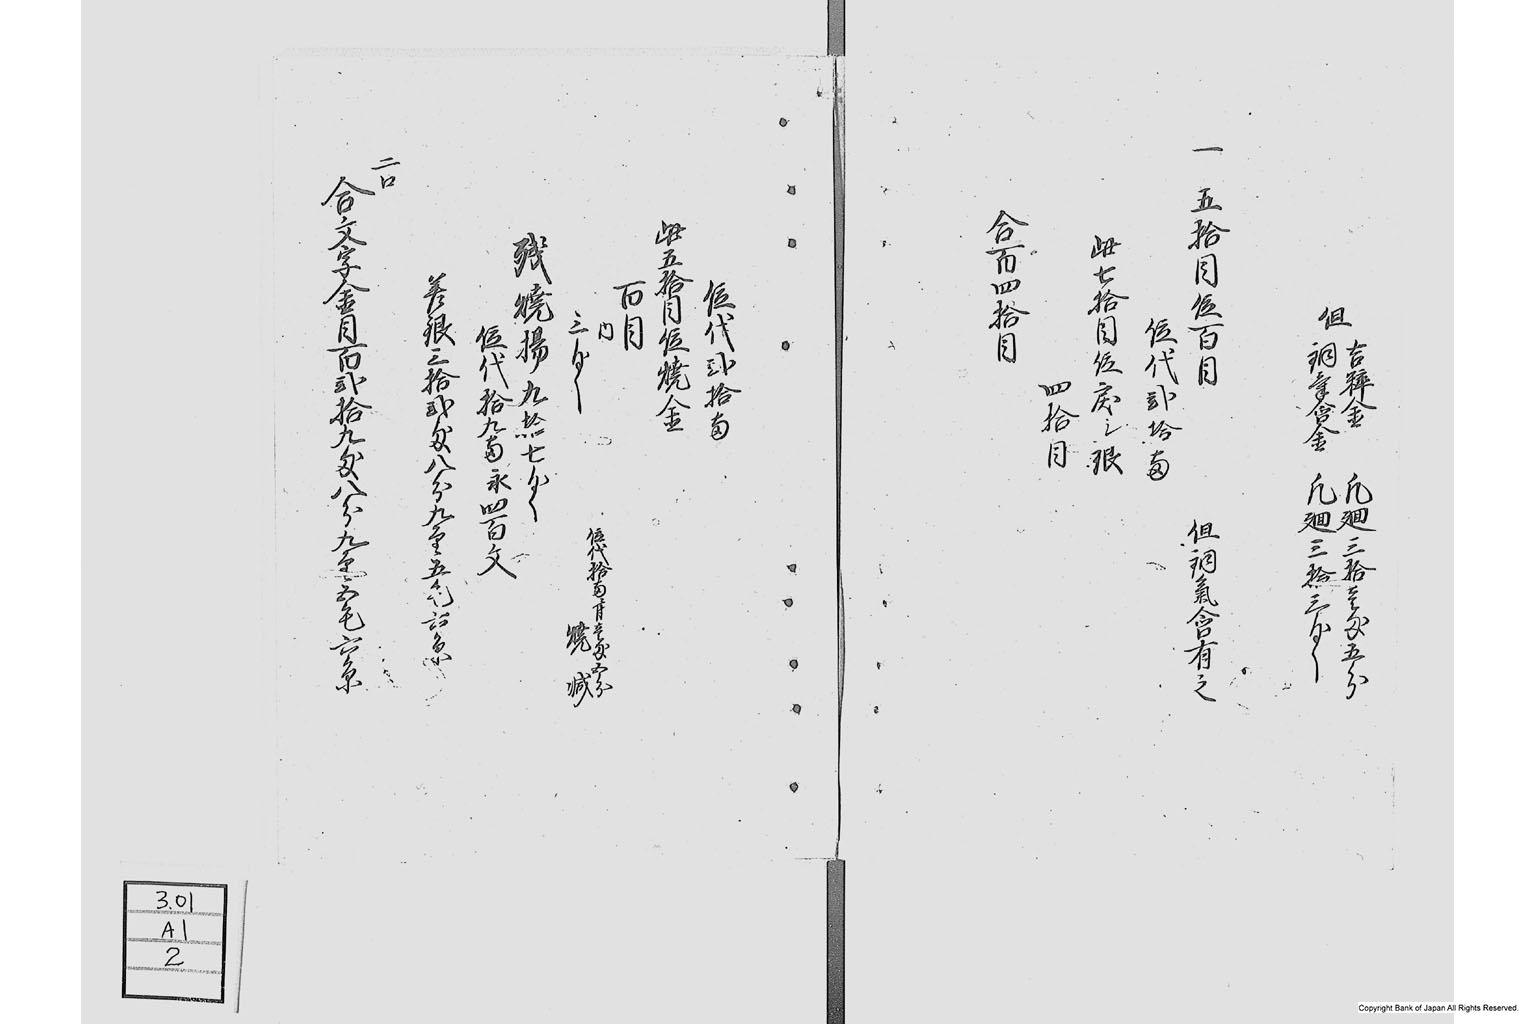 但 吉粹金 凡廻三拾壱匁五分
銅気含金 凡廻三拾三匁
一 五拾目位百目 但銅氣含有之
位代弐拾両
此七拾目位戻シ銀
四拾目
合百四拾目
位代弐拾両
此五拾目位焼金
百目
内
三匁 位代拾両 壱匁五分 焼減
残焼揚九拾七匁
位代拾九両永四百文
差銀三拾弐匁八分九厘五毛六糸
二口
合文字金目百弐拾九匁八分九厘五毛六糸
3.01
A1
2
Copyright Bank of Japan All Rights Reserved.